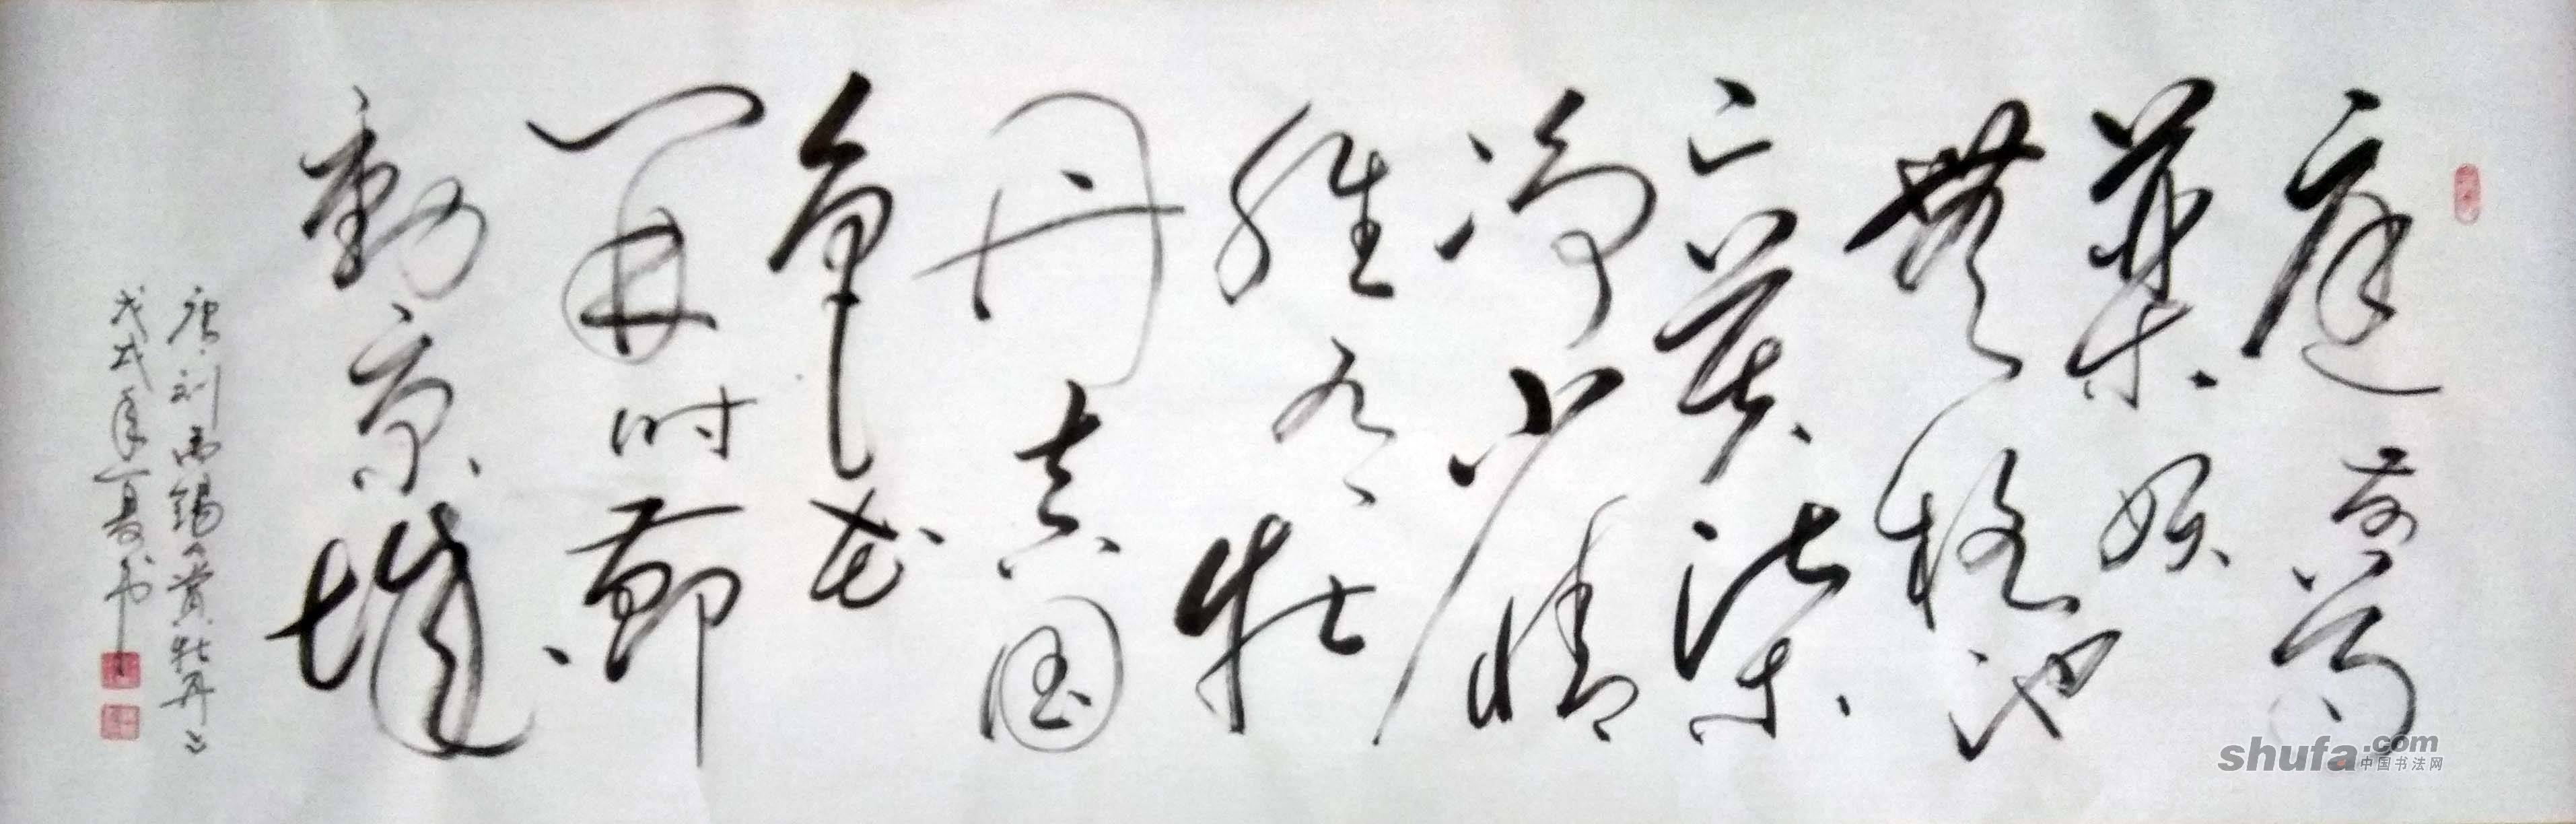 庭前芍
藥妖
無格池
上芙蕖
淨少情
唯有牡
丹真国
色花
開时節
動京城
唐刘禹錫《賞牡丹》
戊戌年夏书
shufa.com
中国书法网